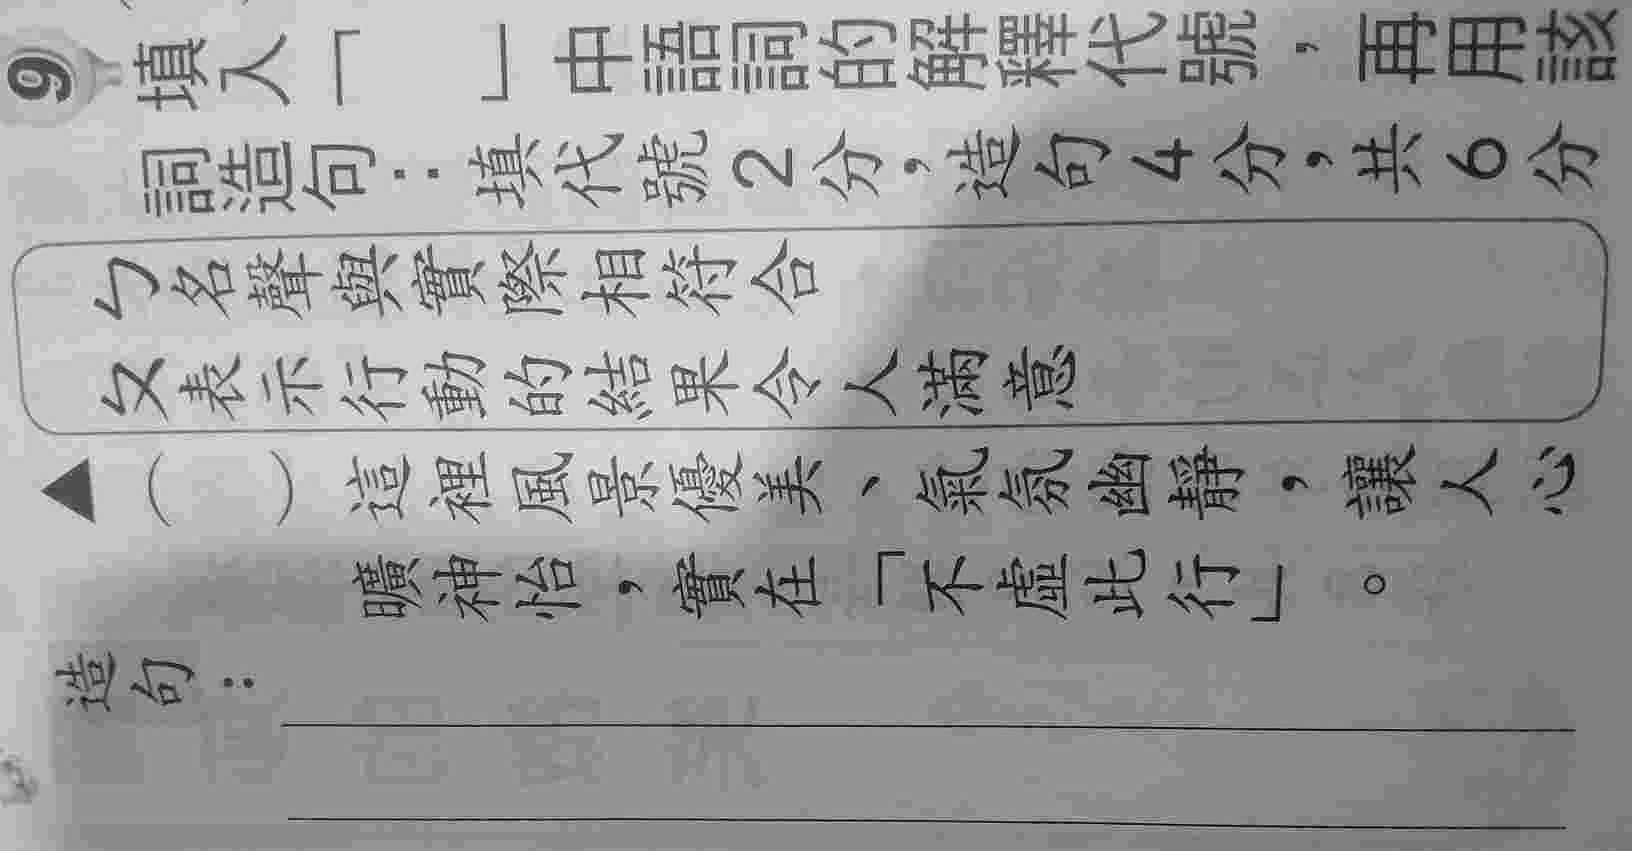 9 填入「 」中語詞的解釋代號，再用該
詞造句：填代號2分，造句4分，共6分
ㄅ名聲與實際相符合
ㄆ表示行動的結果令人滿意
▲（ ）這裡風景優美、氣氛幽靜，讓人心
曠神怡，實在「不虛此行」。
造句：